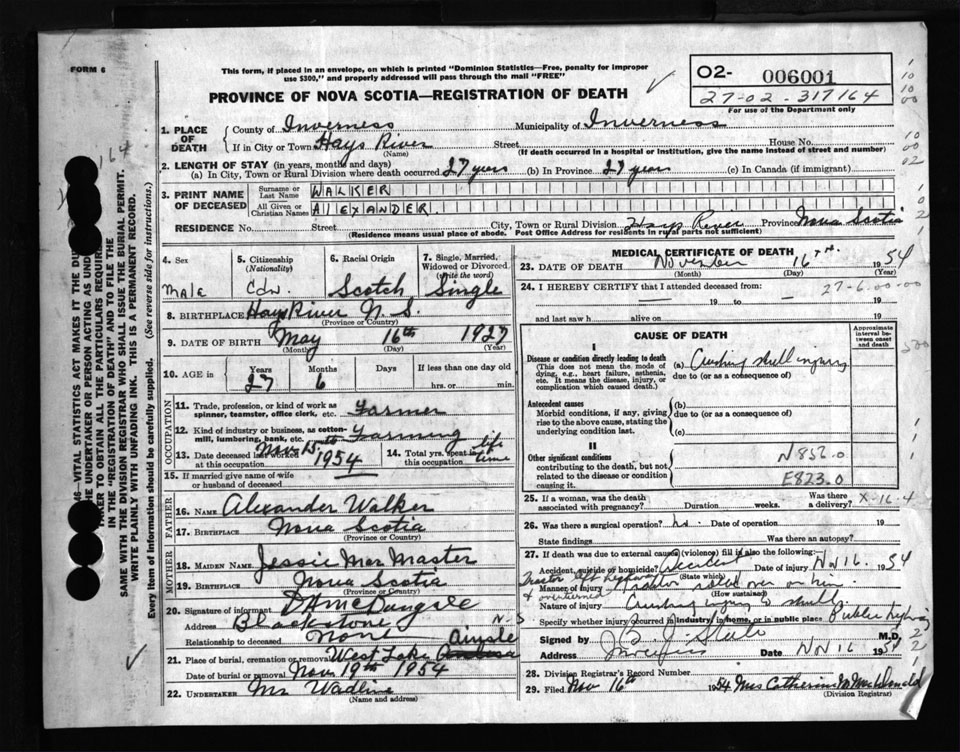 FORM 6
This form, if placed in an envelope, on which is printed "Dominion Statistics—Free, penalty for improper
use $300," and properly addressed will pass through the mail "FREE"
PROVINCE OF NOVA SCOTIA—REGISTRATION OF DEATH
02- 006001
27-02-317164
For use of the Department only
1. PLACE OF DEATH
County of Inverness Municipality of Inverness
If in City or Town Hays River Street House No.
(Name) (If death occurred in a hospital or institution, give the name instead of street and number)
2. LENGTH OF STAY (in years, months and days)
(a) In City, Town or Rural Division where death occurred 27 years (b) In Province 27 years (c) In Canada (if immigrant)
3. PRINT NAME OF DECEASED
Surname or Last Name WALKER
All Given or Christian Names AlEXANDER.
RESIDENCE No. Street City, Town or Rural Division Hays River Province Nova Scotia
(Residence means usual place of abode. Post Office Address for residents in rural parts not sufficient)
4. Sex Male
5. Citizenship (Nationality) Cdn.
6. Racial Origin Scotch
7. Single, Married, Widowed or Divorced (Write the word) Single
8. BIRTHPLACE Hays River N. S.
(Province or Country)
9. DATE OF BIRTH May 16th 1927
(Month) (Day) (Year)
10. AGE in Years Months Days If less than one day old
27 6 hrs. or min.
OCCUPATION
11. Trade, profession, or kind of work as spinner, teamster, office clerk, etc. Farmer
12. Kind of industry or business, as cotton-mill, lumbering, bank, etc. Farming
13. Date deceased last worked at this occupation Nov 15th 1954
14. Total yrs. spent in this occupation life time
15. If married give name of wife or husband of deceased
FATHER
16. NAME Alexander Walker
17. BIRTHPLACE Nova Scotia
(Province or Country)
MOTHER
18. MAIDEN NAME Jessie MacMaster
19. BIRTHPLACE Nova Scotia
(Province or Country)
20. Signature of informant D A McDougall
Address Blackstone N-S
Relationship to deceased None
21. Place of burial, cremation or removal West Lake Ainslie
Date of burial or removal Nov. 19th 1954
22. UNDERTAKER Mr
(Name and address)
MEDICAL CERTIFICATE OF DEATH
23. DATE OF DEATH November 16th. 1954
(Month) (Day) (Year)
24. I HEREBY CERTIFY that I attended deceased from: 27-6.00-00
19 to 19
and last saw h alive on 19
CAUSE OF DEATH
Approximate interval between onset and death
I
Disease or condition directly leading to death
(This does not mean the mode of dying, e.g., heart failure, asthenia, etc. It means the disease, injury, or complication which caused death.)
(a) Crushing skull injury
due to (or as a consequence of)
Antecedent causes
Morbid conditions, if any, giving rise to the above cause, stating the underlying condition last.
(b)
due to (or as a consequence of)
(c)
II
Other significant conditions
contributing to the death, but not related to the disease or condition causing it.
N852.0
E823.0
25. If a woman, was the death associated with pregnancy? Duration weeks. Was there a delivery? X-16-4
26. Was there surgical operation? No. Date of operation 19
State findings Was there an autopsy?
27. If death was due to external causes (violence) fill in also the following:
Accident, suicide or homicide? Accident Date of injury Nov 16. 1954
(State which)
Tractor left highway & overturned
Manner of injury Tractor rolled over on him.
(How sustained)
Nature of injury Crushing injury to skull.
Specify whether injury occurred in industry, in home, or in public place Public highway
Signed by M.D.
Address Inverness Date Nov 16 1954
28. Division Registrar's Record Number
29. Filed Nov 16th 1954 Mrs Catherine M MacDonald
(Division Registrar)
46—VITAL STATISTICS ACT MAKES IT THE
THE UNDERTAKER OR PERSON ACTING AS
TAKER TO OBTAIN ALL THE PARTICULARS
IN THE "REGISTRATION OF DEATH" AND TO FILE THE
SAME WITH THE DIVISION REGISTRAR WHO SHALL ISSUE THE BURIAL PERMIT.
WRITE PLAINLY WITH UNFADING INK. THIS IS A PERMANENT RECORD.
Every item of information should be carefully supplied. (See reverse side for instructions.)